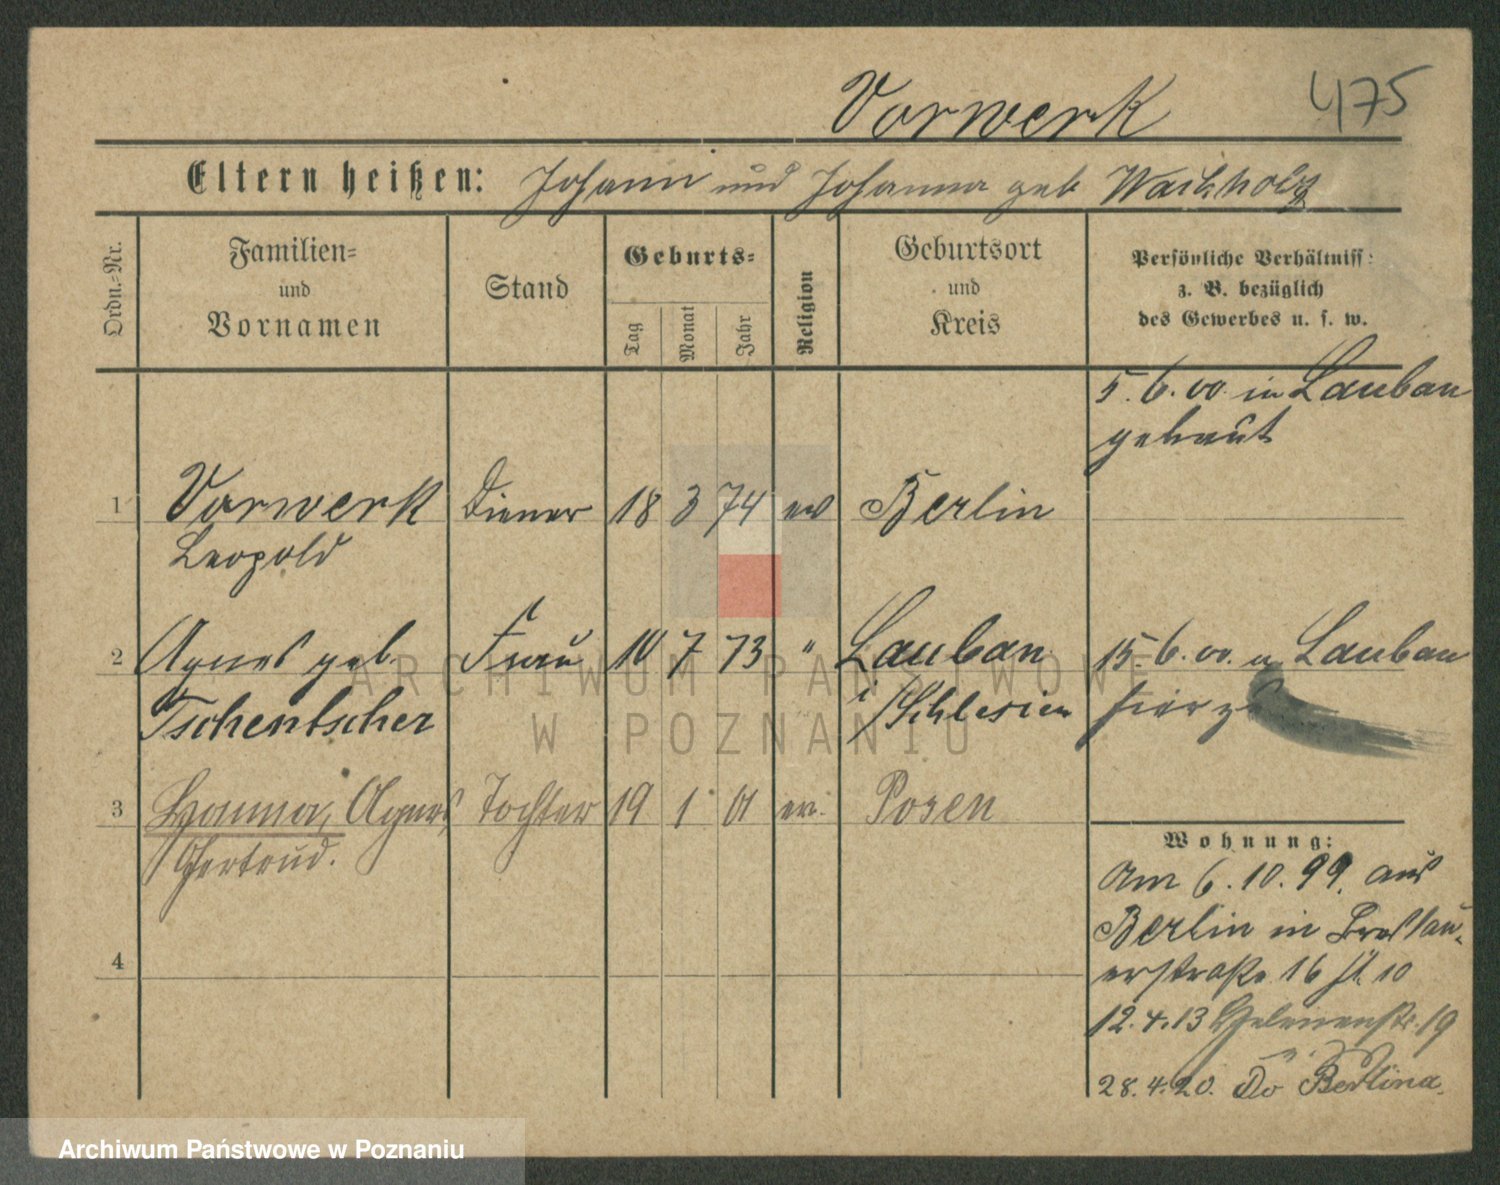 475
Vorwerk
Eltern heißen: Johann und Johanna geb Wachholz
Ordn.-Nr.
Familien-
und
Vornamen
Stand
Geburts-
Tag
Monat
Jahr
Religion
Geburtsort
und
Kreis
Persönliche Verhältniss
z. B. bezüglich
des Gewerbes u. s. w.
5. 6. 00. in Lauban
getraut
1 Vorwerk Diener 18 3 74 ev Berlin
Leopold
2 Agnes geb. Frau 10 7 73 " Lauban 15. 6. 00. a Lauban
Tschentscher i/Schlesien hier
3 Hanna, Agnes Tochter 19 1 01 ev. Posen
Gertrud.
4
Wohnung:
Am 6. 10. 99. aus
Berlin in Breslau-
erstraße 16 10
12. 4. 13 19
28. 4. 20. Do Berlina.
ARCHIWUM PAŃSTWOWE
W POZNANIU
Archiwum Państwowe w Poznaniu